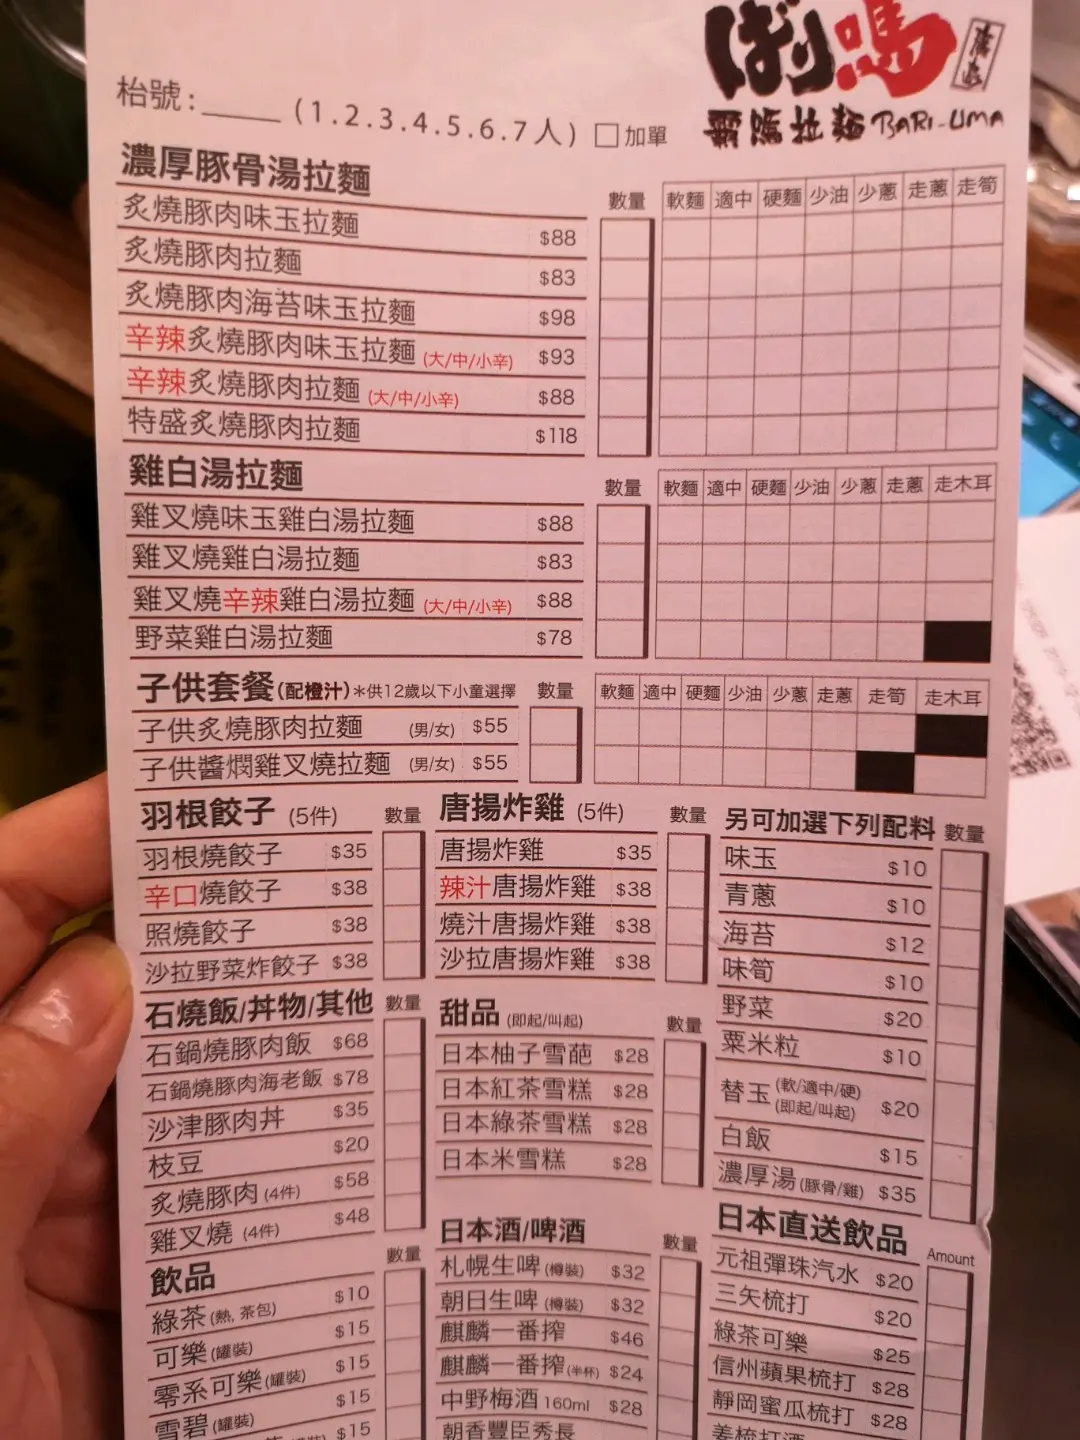 ばり嗎
霸嗎拉麵 BARI-UMA
枱號:_____ (1.2.3.4.5.6.7人) □加單
濃厚豚骨湯拉麵 數量 軟麵 適中 硬麵 少油 少蔥 走蔥 走筍
炙燒豚肉味玉拉麵 $88
炙燒豚肉拉麵 $83
炙燒豚肉海苔味玉拉麵 $98
辛辣炙燒豚肉味玉拉麵 (大/中/小辛) $93
辛辣炙燒豚肉拉麵 (大/中/小辛) $88
特盛炙燒豚肉拉麵 $118
雞白湯拉麵 數量 軟麵 適中 硬麵 少油 少蔥 走蔥 走木耳
雞叉燒味玉雞白湯拉麵 $88
雞叉燒雞白湯拉麵 $83
雞叉燒辛辣雞白湯拉麵 (大/中/小辛) $88
野菜雞白湯拉麵 $78
子供套餐(配橙汁)*供12歲以下小童選擇 數量 軟麵 適中 硬麵 少油 少蔥 走蔥 走筍 走木耳
子供炙燒豚肉拉麵 (男/女) $55
子供醬燜雞叉燒拉麵 (男/女) $55
羽根餃子 (5件) 數量
羽根燒餃子 $35
辛口燒餃子 $38
照燒餃子 $38
沙拉野菜炸餃子 $38
石燒飯/丼物/其他 數量
石鍋燒豚肉飯 $68
石鍋燒豚肉海老飯 $78
沙津豚肉丼 $35
枝豆 $20
炙燒豚肉 (4件) $58
雞叉燒 (4件) $48
飲品 數量
綠茶 (熱, 茶包) $10
可樂 (罐裝) $15
零系可樂 (罐裝) $15
雪碧 (罐裝) $15
$15
唐揚炸雞 (5件) 數量
唐揚炸雞 $35
辣汁唐揚炸雞 $38
燒汁唐揚炸雞 $38
沙拉唐揚炸雞 $38
甜品 (即起/叫起) 數量
日本柚子雪葩 $28
日本紅茶雪糕 $28
日本綠茶雪糕 $28
日本米雪糕 $28
日本酒/啤酒 數量
札幌生啤 (樽裝) $32
朝日生啤 (樽裝) $32
麒麟一番搾 $46
麒麟一番搾 (半杯) $24
中野梅酒 160ml $28
朝香豐臣秀長
另可加選下列配料 數量
味玉 $10
青蔥 $10
海苔 $12
味筍 $10
野菜 $20
粟米粒 $10
替玉 (軟/適中/硬) (即起/叫起) $20
白飯 $15
濃厚湯 (豚骨/雞) $35
日本直送飲品 Amount
元祖彈珠汽水 $20
三矢梳打 $20
綠茶可樂 $25
信州蘋果梳打 $28
靜岡蜜瓜梳打 $28